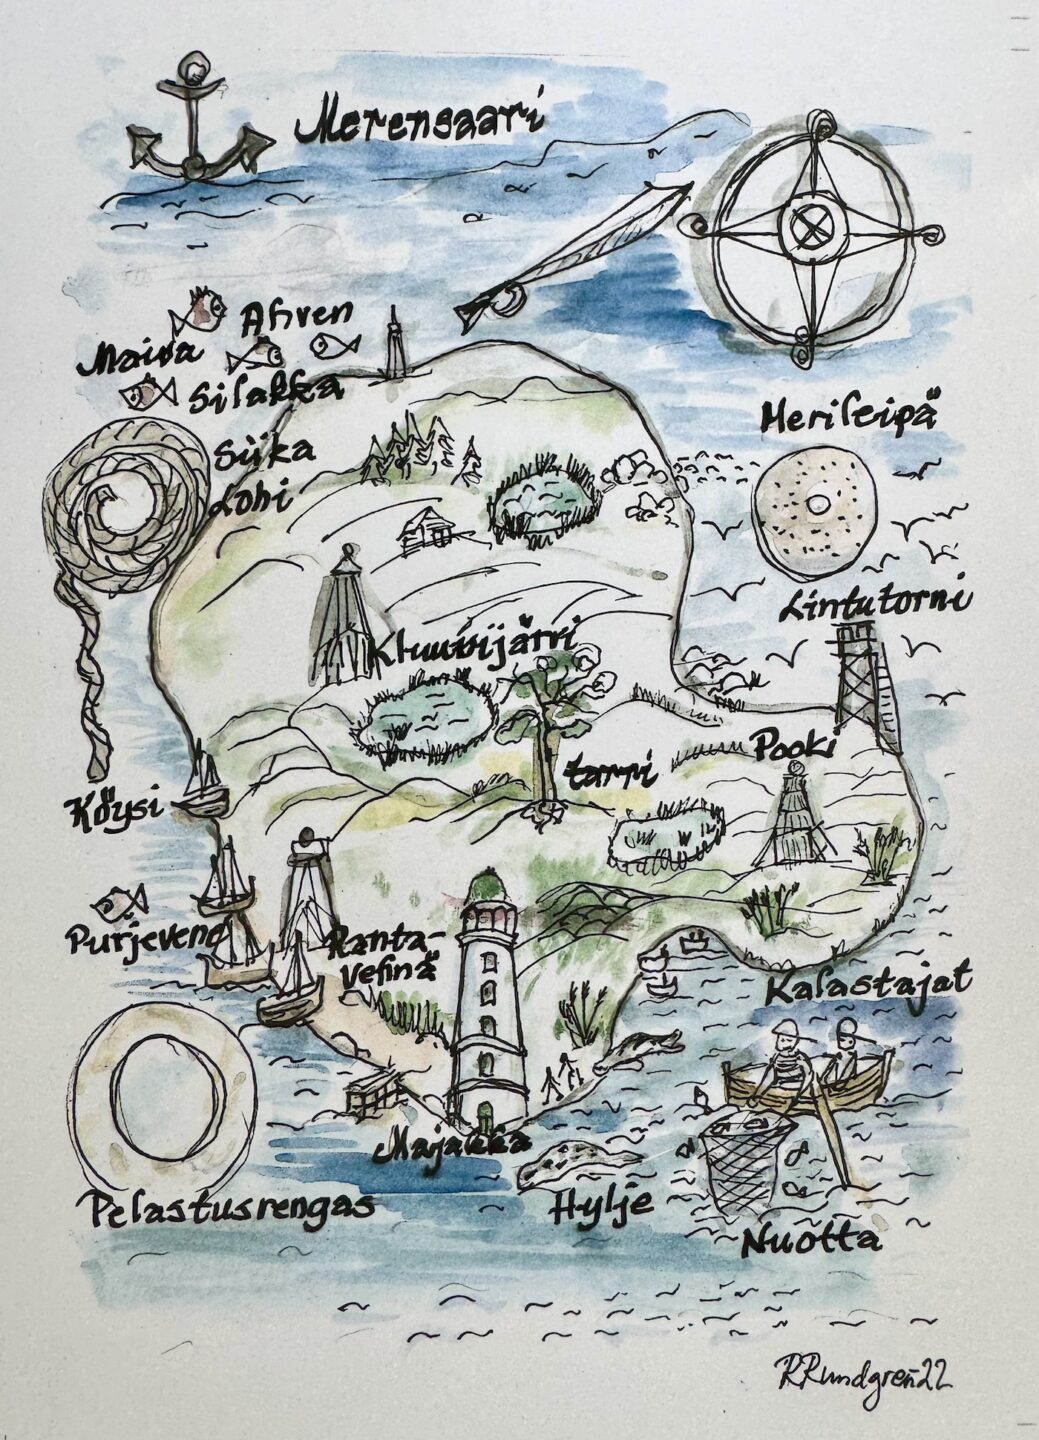 Merensaari
Ahven
Maiva
Silakka
Siika
Lohi
Merileipä
Lintutorni
Kluuvijärvi
tarvi
Pooki
Köysi
Purjevene
Ranta-
Vehnä
Kalastajat
Majakka
Pelastusrengas
Hylje
Nuotta
RRundgren22